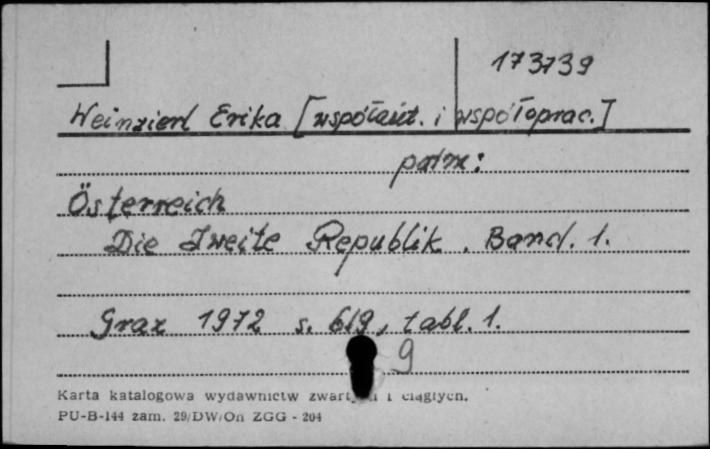 173739
Weinzierl Erika [współaut. i współoprac.]
patrz:
Österreich
Die Zweite Republik. Band. 1.
Graz 1972 s. 619, tabl. 1.
9
Karta katalogowa wydawnictw i ciągłych.
PU-B-144 zam. 29/DW/On ZGG - 204